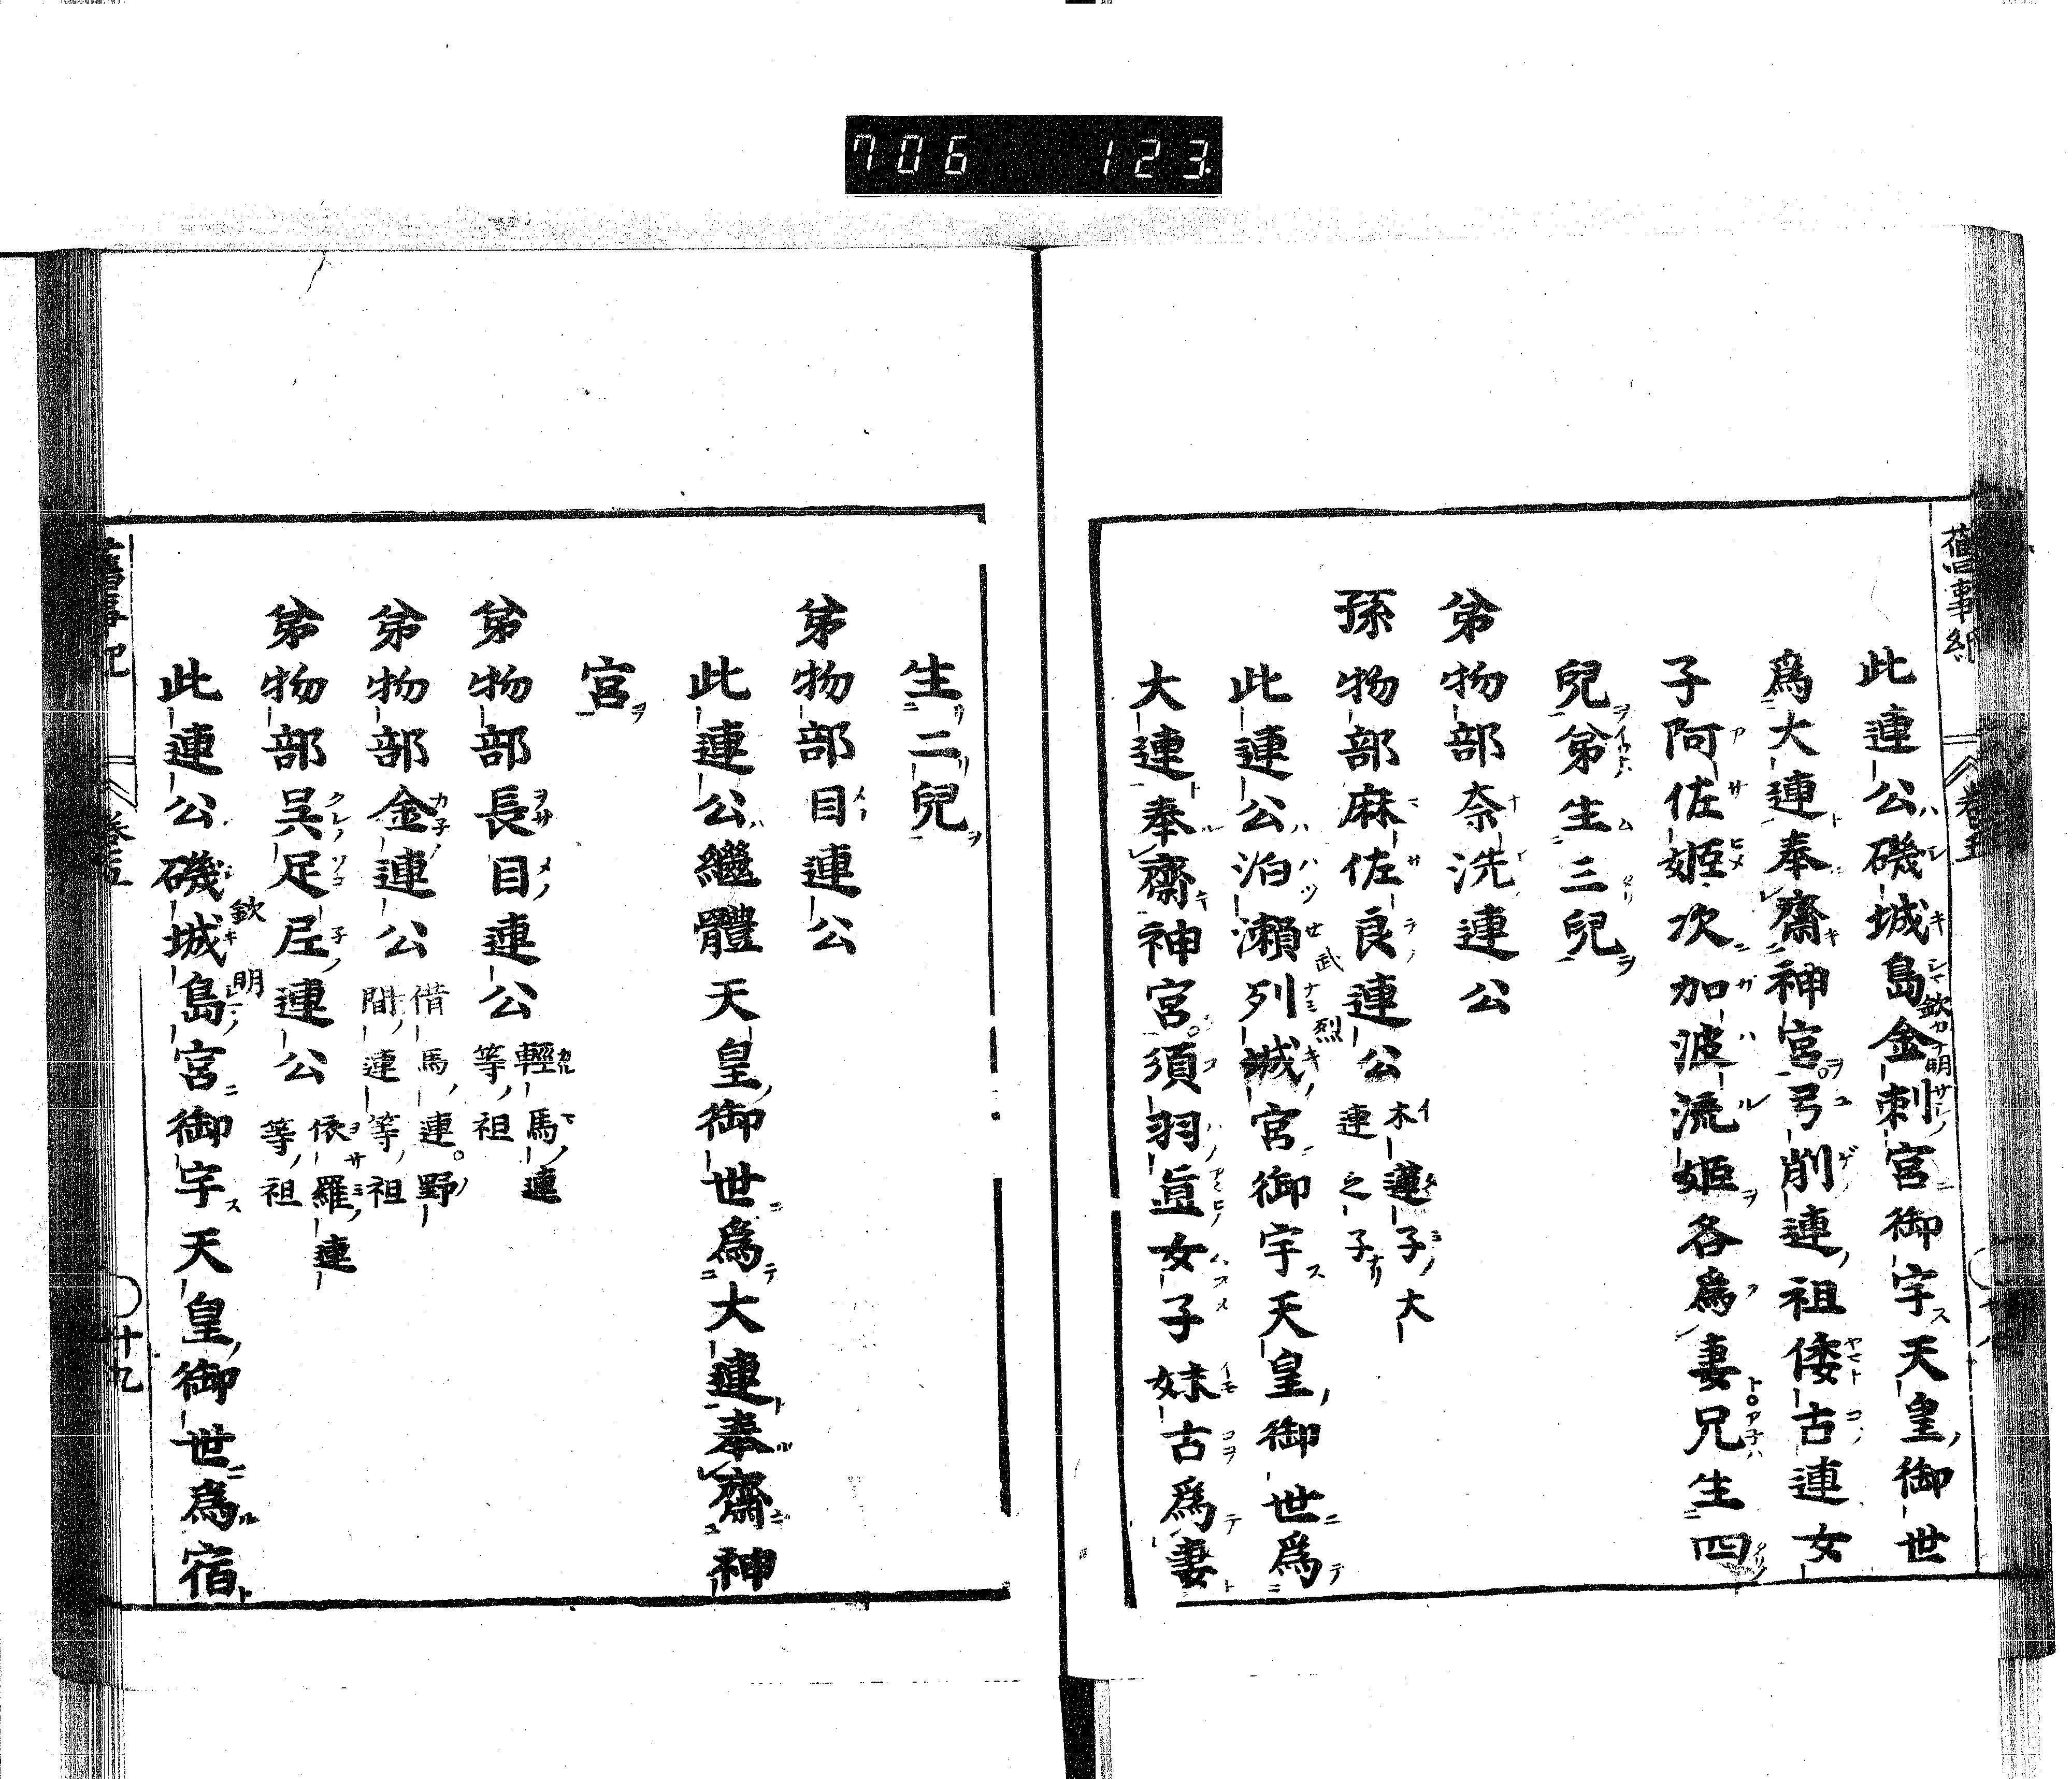 706 123
舊事紀 卷五
此連公磯城島金刺宮御宇天皇御世
欽明
爲大連奉齋神宮弓削連祖倭古連女
子阿佐姬次加波流姬各爲妻兄生四
兒弟生三兒
弟物部奈洗連公
孫物部麻佐良連公 木蓮子大
連之子
此連公泊瀬列城宮御宇天皇御世爲
武烈
大連奉齋神宮須羽直女子妹古爲妻
生二兒
弟物部目連公
此連公繼體天皇御世爲大連奉齋神
宮
弟物部長目連公 輕馬連
等祖
弟物部金連公 借馬連野
間連等祖
弟物部呉足尼連公 依羅連
等祖
此連公磯城島宮御宇天皇御世爲宿
欽明
舊事紀 卷五 十九